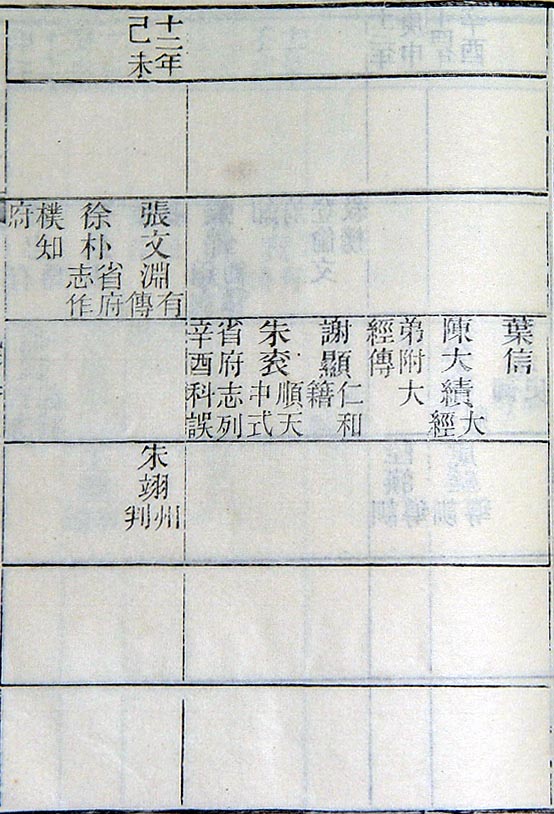 葉信
陳大績大經
弟附大經傳
謝顯仁和籍
朱衮順天中式
省府志列辛酉科誤
十二年己未
張文淵有傳
徐朴省府志作
樸知府
朱翊州判